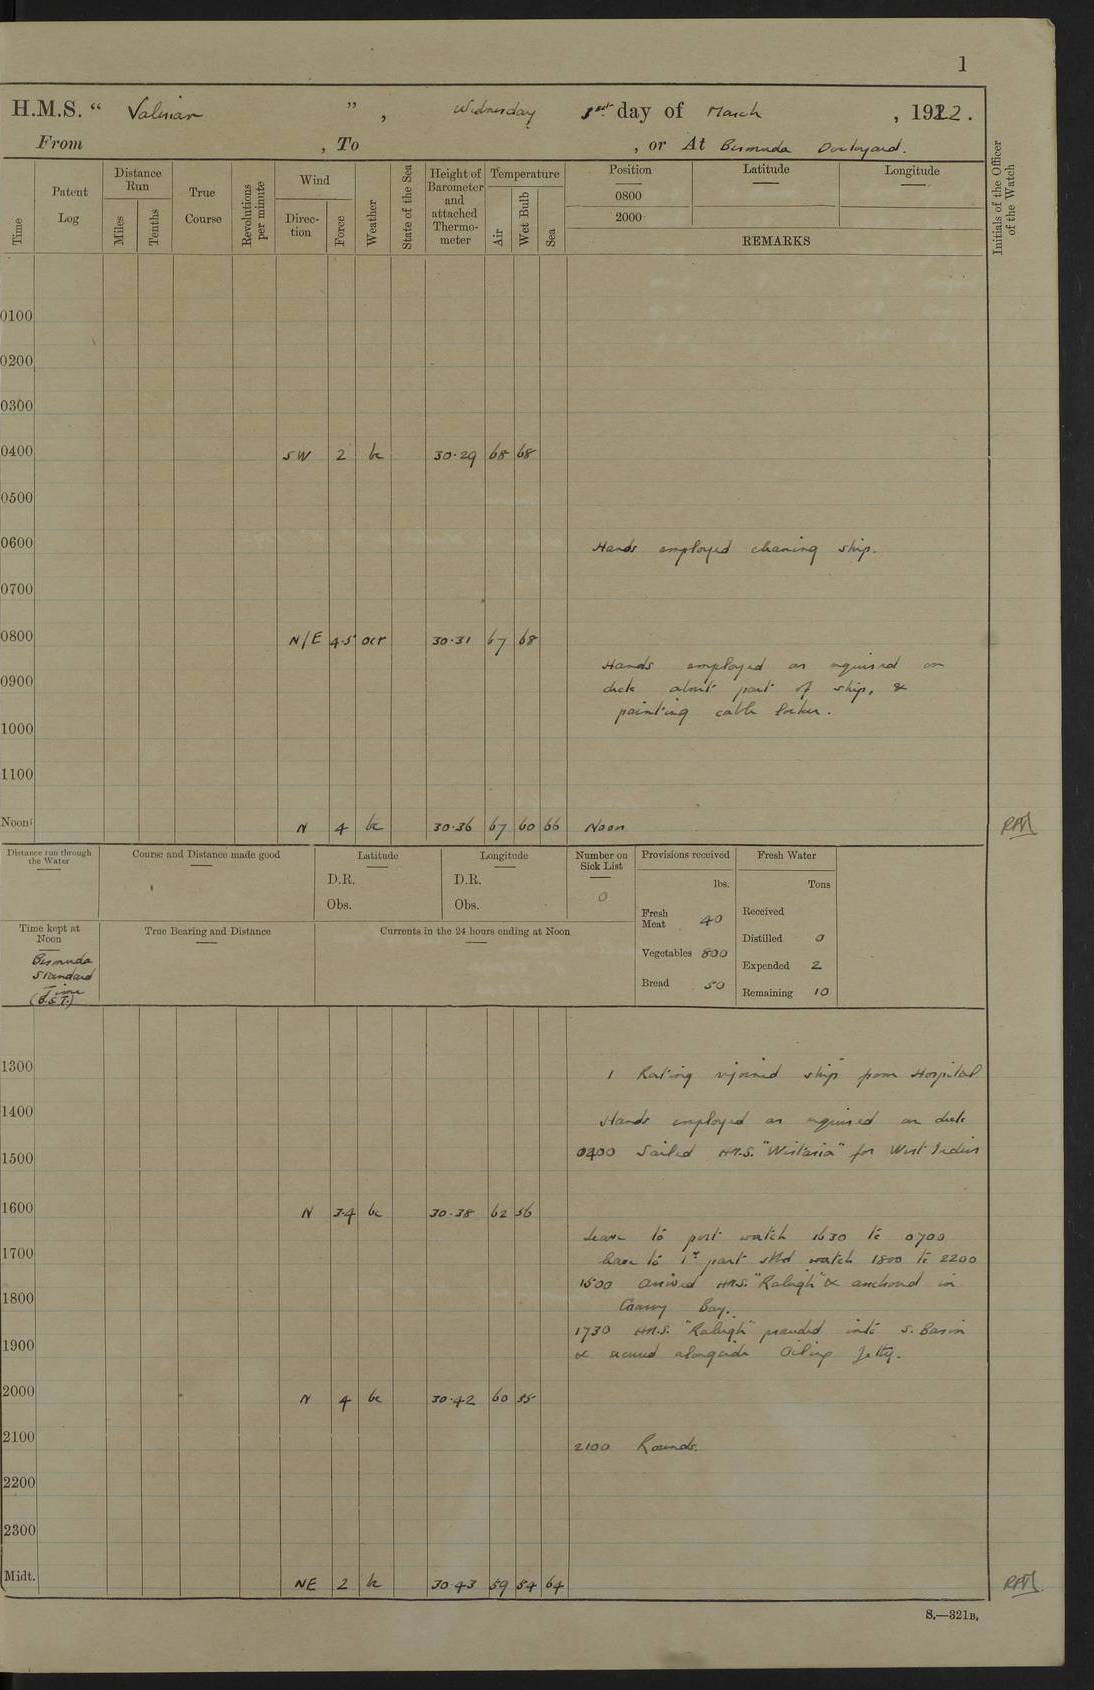 1
H.M.S. “ Valerian ” , Wednesday 1st day of March , 1922.
From , To , or At Bermuda Dockyard.
Time
Patent Log
Distance Run
Miles
Tenths
True Course
Revolutions per minute
Wind
Direc-tion
Force
Weather
State of the Sea
Height of Barometer and attached Thermo-meter
Temperature
Air
Wet Bulb
Sea
Position
0800
2000
Latitude
Longitude
REMARKS
Initials of the Officer of the Watch
0100
0200
0300
0400 SW 2 bc 30·29 68 68
0500
0600 Hands employed cleaning ship.
0700
0800 N/E 4·5 ocr 30·31 67 68
Hands employed as required on
0900 deck about part of ship, &
painting cable locker.
1000
1100
Noon N 4 bc 30·36 67 60 66 Noon
Distance run through the Water
Course and Distance made good
Latitude
D.R.
Obs.
Longitude
D.R.
Obs.
Number on Sick List
0
Provisions received
lbs.
Fresh Meat 40
Vegetables 800
Bread 50
Fresh Water
Tons
Received
Distilled 0
Expended 2
Remaining 10
Time kept at Noon
Bermuda
Standard
Time
(B.S.T.)
True Bearing and Distance
Currents in the 24 hours ending at Noon
1300 1 Rating rejoined ship from Hospital
1400 Hands employed as required on deck
0400 Sailed H.M.S. "Wistaria" for West Indies
1500
1600 N 3·4 bc 30·38 62 56
Leave to port watch 1630 to 0700
1700 Leave to 1st part stbd watch 1800 to 2200
1500 Arrived H.M.S. "Raleigh" & anchored in
1800 Grassy Bay.
1730 H.M.S. "Raleigh" proceeded into S. Basin
1900 & secured alongside Oiling Jetty.
2000 N 4 bc 30·42 60 55
2100 2100 Rounds.
2200
2300
Midt. NE 2 bc 30·43 59 54 64
S.—321B.